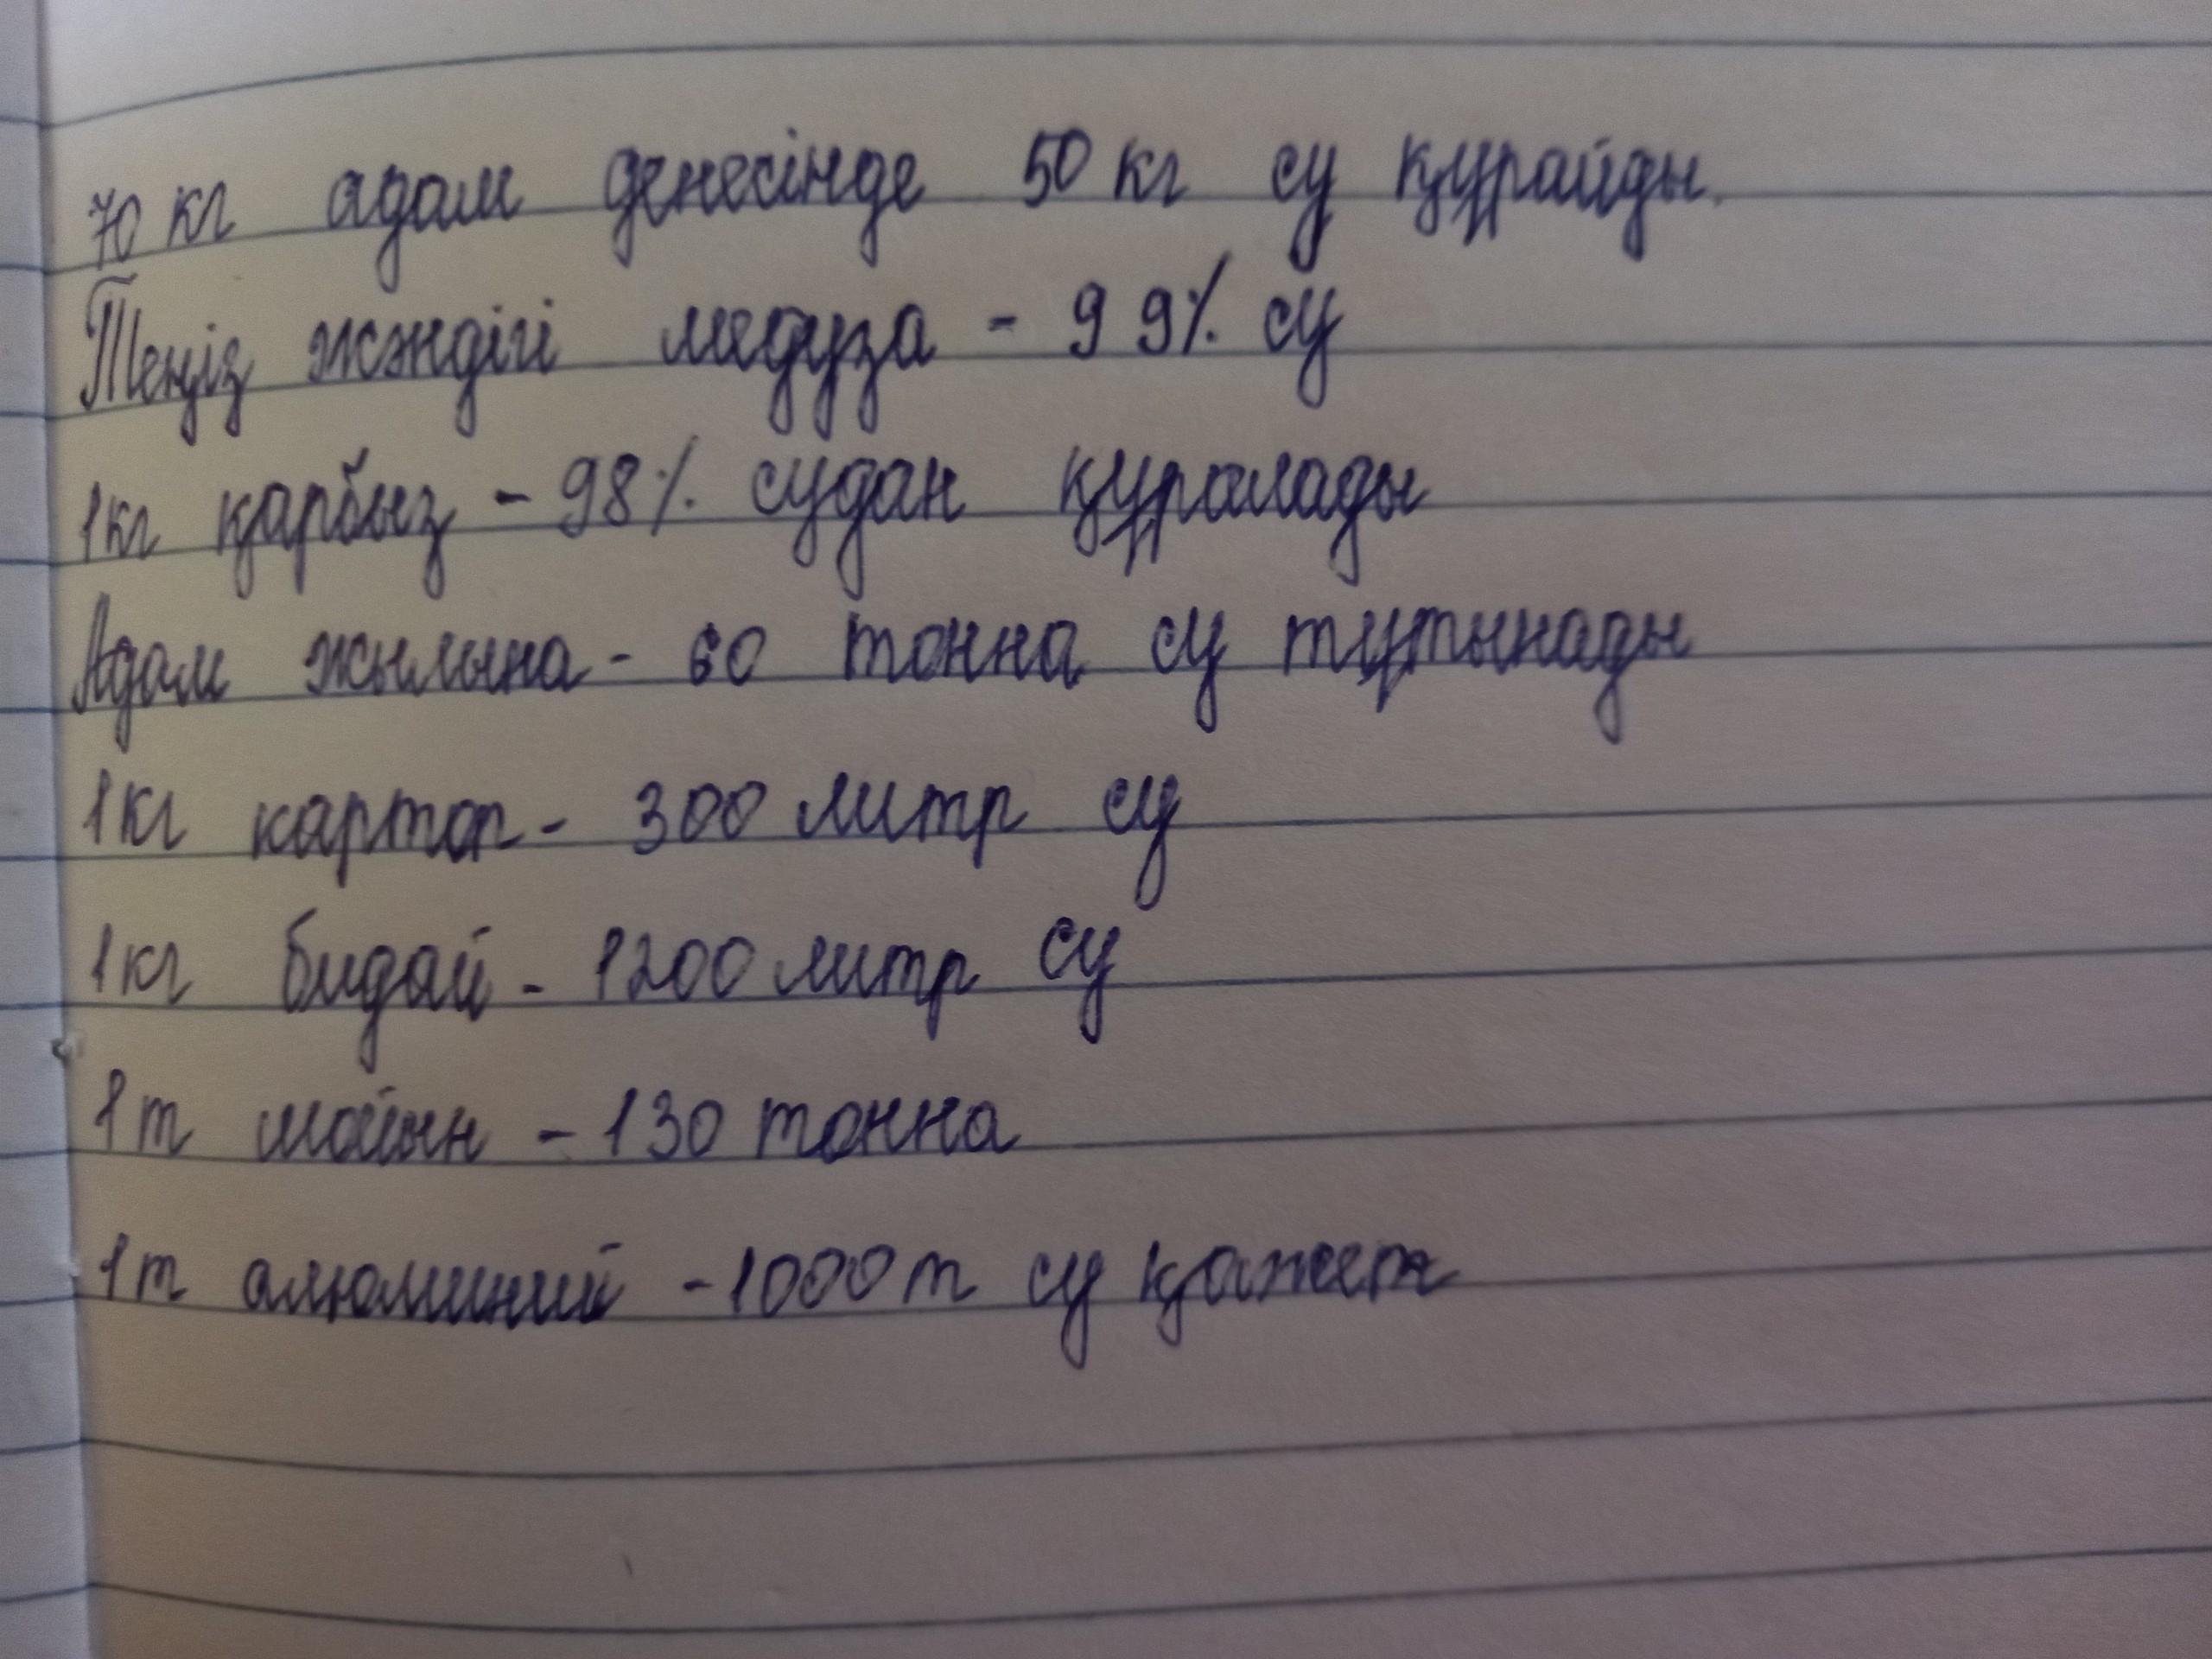 70 кг адам денесінде 50 кг су құрайды.
Теңіз жәндігі медуза - 99% су
1кг қарбыз - 98% судан құралады
Адам жылына - 60 тонна су тұтынады
1кг картоп - 300 литр су
1кг бидай - 1200 литр су
1т мойын - 130 тонна
1т алюминий - 1000 т су қажет